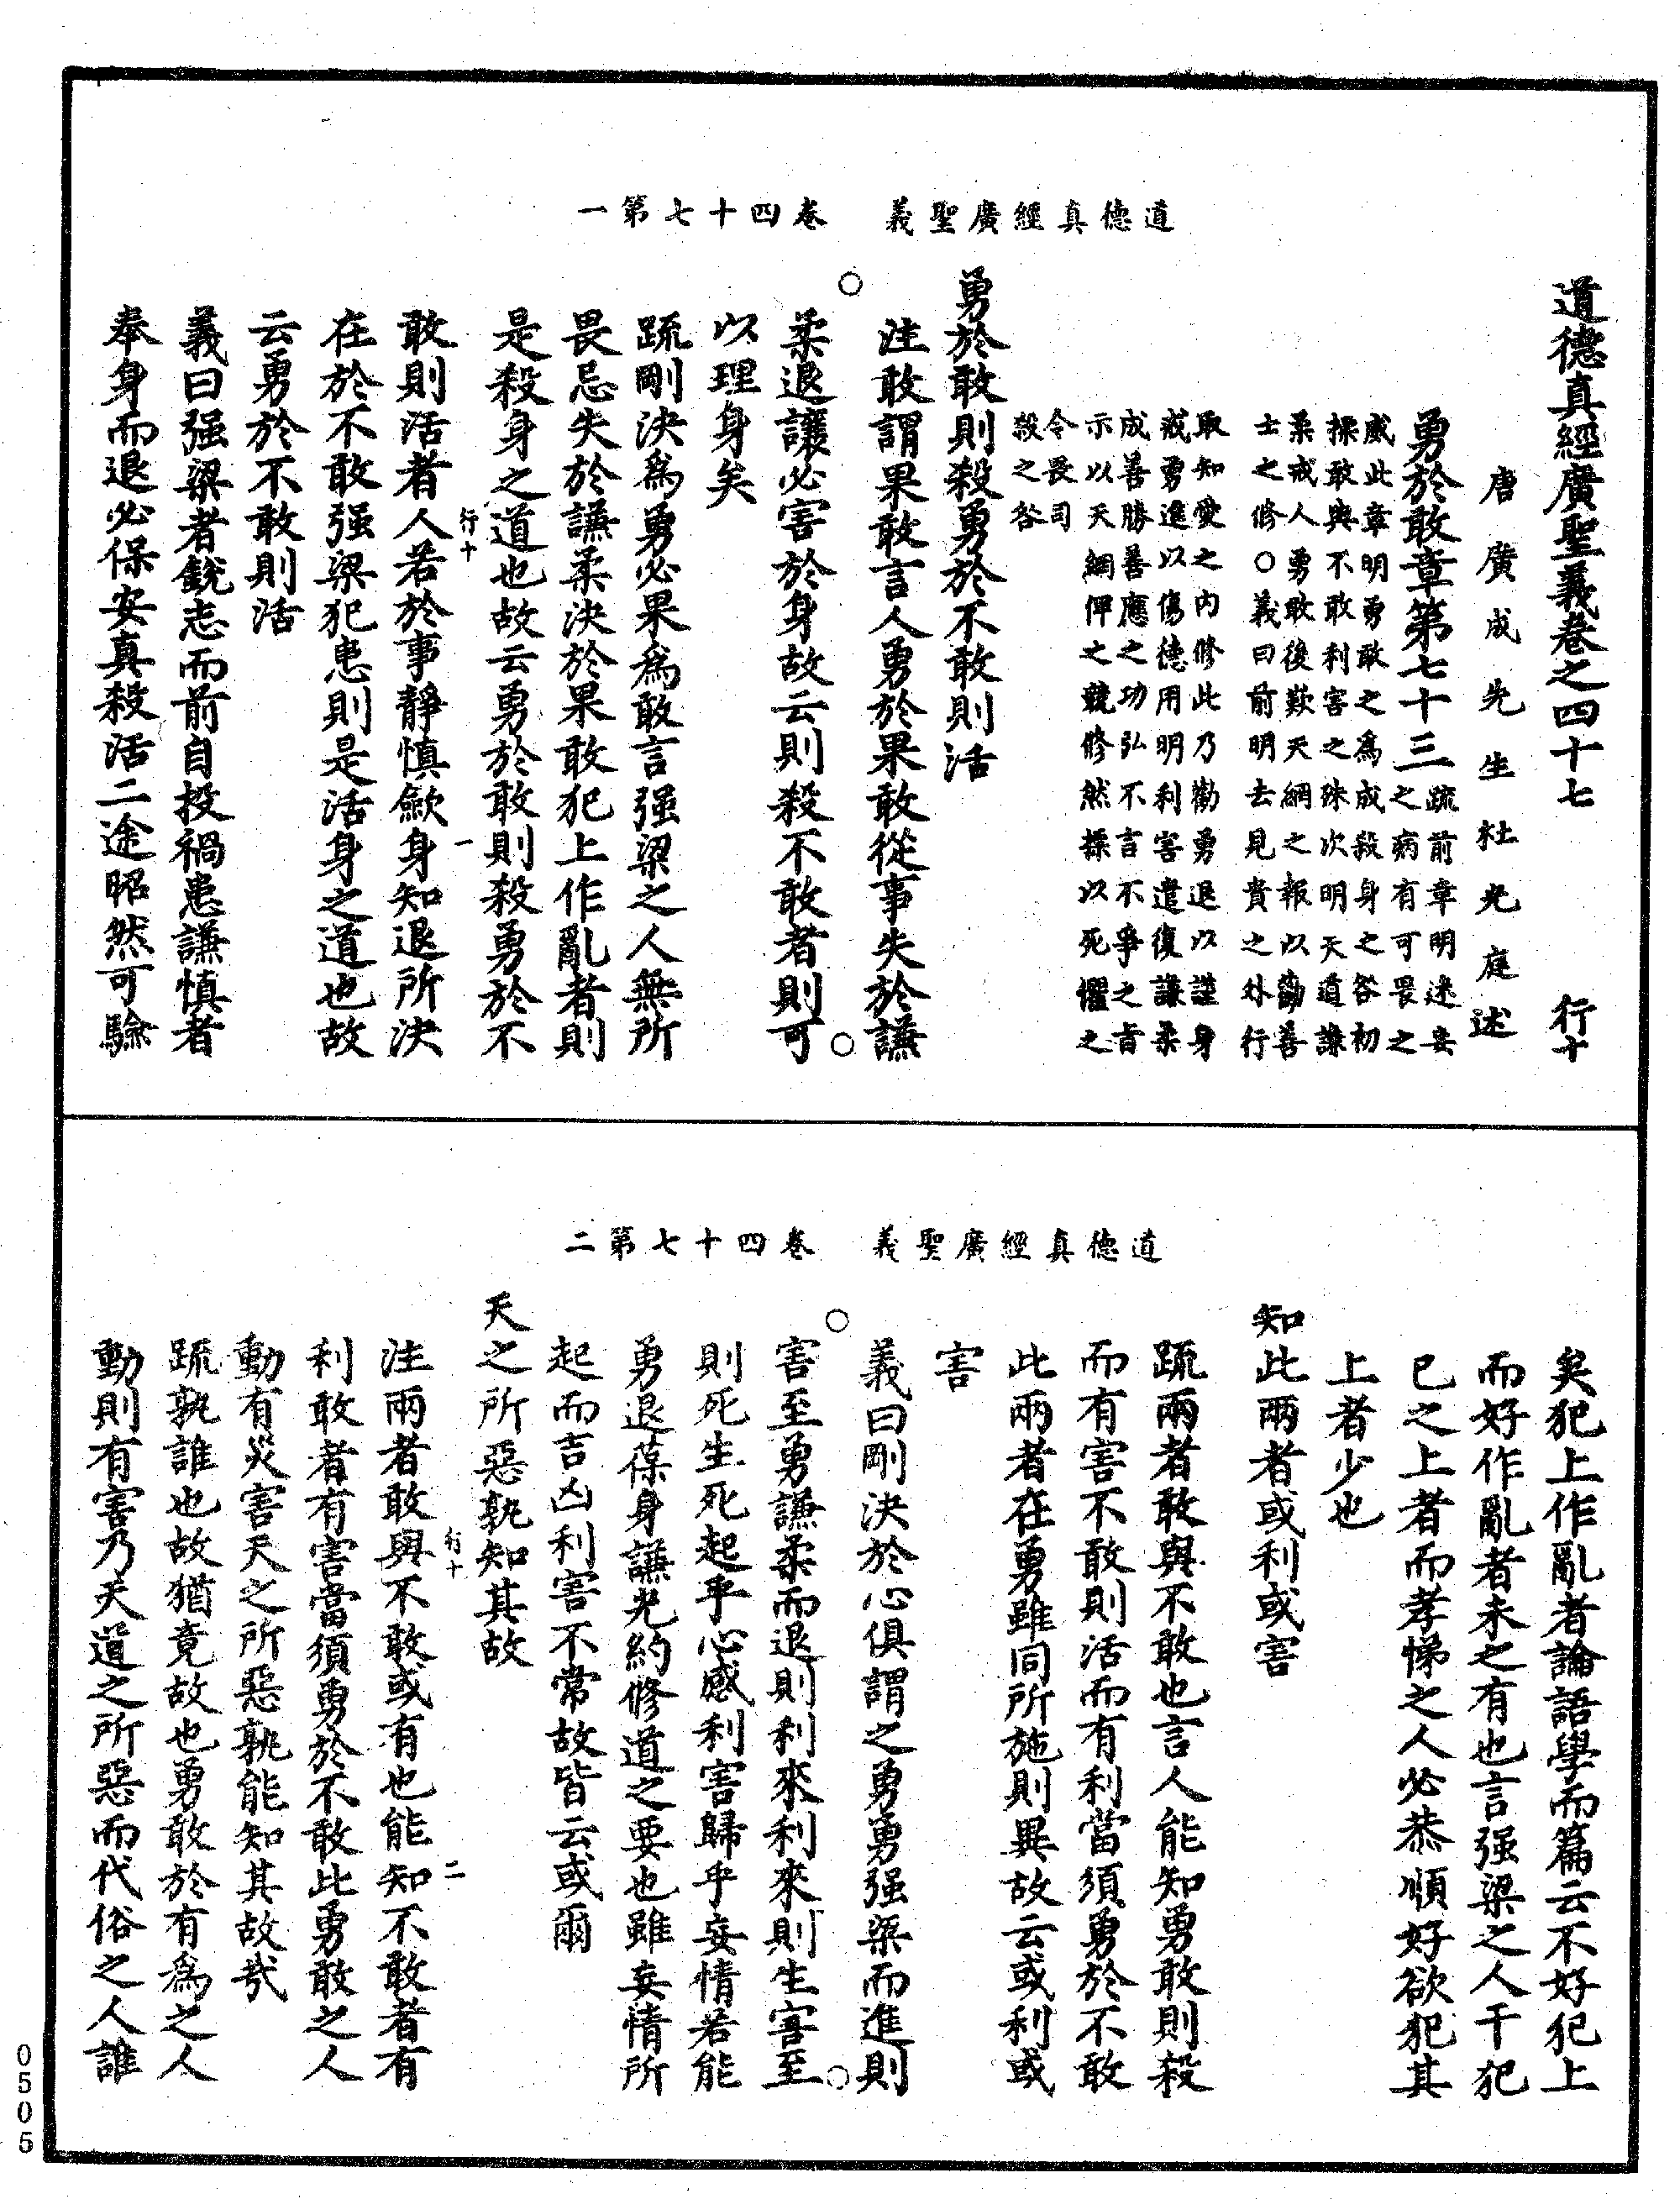 道德真經廣聖義　卷四十七第一
道德真經廣聖義卷之四十七　行十
唐廣成先生杜光庭述
勇於敢章第七十三
疏前章明迷妄
之病有可畏之
威此章明勇敢之為成殺身之咎初
標敢與不敢利害之殊次明天道謙
柔戒人勇敢後歎天網之報以勸善
士之修○義曰前明去見貴之外行
取知愛之內修此乃勸勇退以謹身
戒勇進以傷德用明利害遣復謙柔
成善勝善應之功弘不言不爭之旨
示以天網俾之兢修然標以死懼之
令畏司
殺之咎
勇於敢則殺勇於不敢則活
注敢謂果敢言人勇於果敢從事失於謙
柔退讓必害於身故云則殺不敢者則可
以理身矣
疏剛決為勇必果為敢言强梁之人無所
畏忌失於謙柔決於果敢犯上作亂者則
是殺身之道也故云勇於敢則殺勇於不
行十　一
敢則活者人若於事靜慎歛身知退所決
在於不敢强梁犯患則是活身之道也故
云勇於不敢則活
義曰强梁者銳志而前自投禍患謙慎者
奉身而退必保安真殺活二途昭然可驗
道德真經廣聖義　卷四十七第二
矣犯上作亂者論語學而篇云不好犯上
而好作亂者未之有也言强梁之人干犯
已之上者而孝悌之人必恭順好欲犯其
上者少也
知此兩者或利或害
疏兩者敢與不敢也言人能知勇敢則殺
而有害不敢則活而有利當須勇於不敢
此兩者在勇雖同所施則異故云或利或
害
義曰剛決於心俱謂之勇勇强梁而進則
害至勇謙柔而退則利來利來則生害至
則死生死起乎心感利害歸乎妄情若能
勇退葆身謙光約修道之要也雖妄情所
起而吉凶利害不常故皆云或爾
天之所惡孰知其故
行十　二
注兩者敢與不敢或有也能知不敢者有
利敢者有害當須勇於不敢此勇敢之人
動有災害天之所惡孰能知其故哉
疏孰誰也故猶竟故也勇敢於有為之人
動則有害乃天道之所惡而代俗之人誰
0505